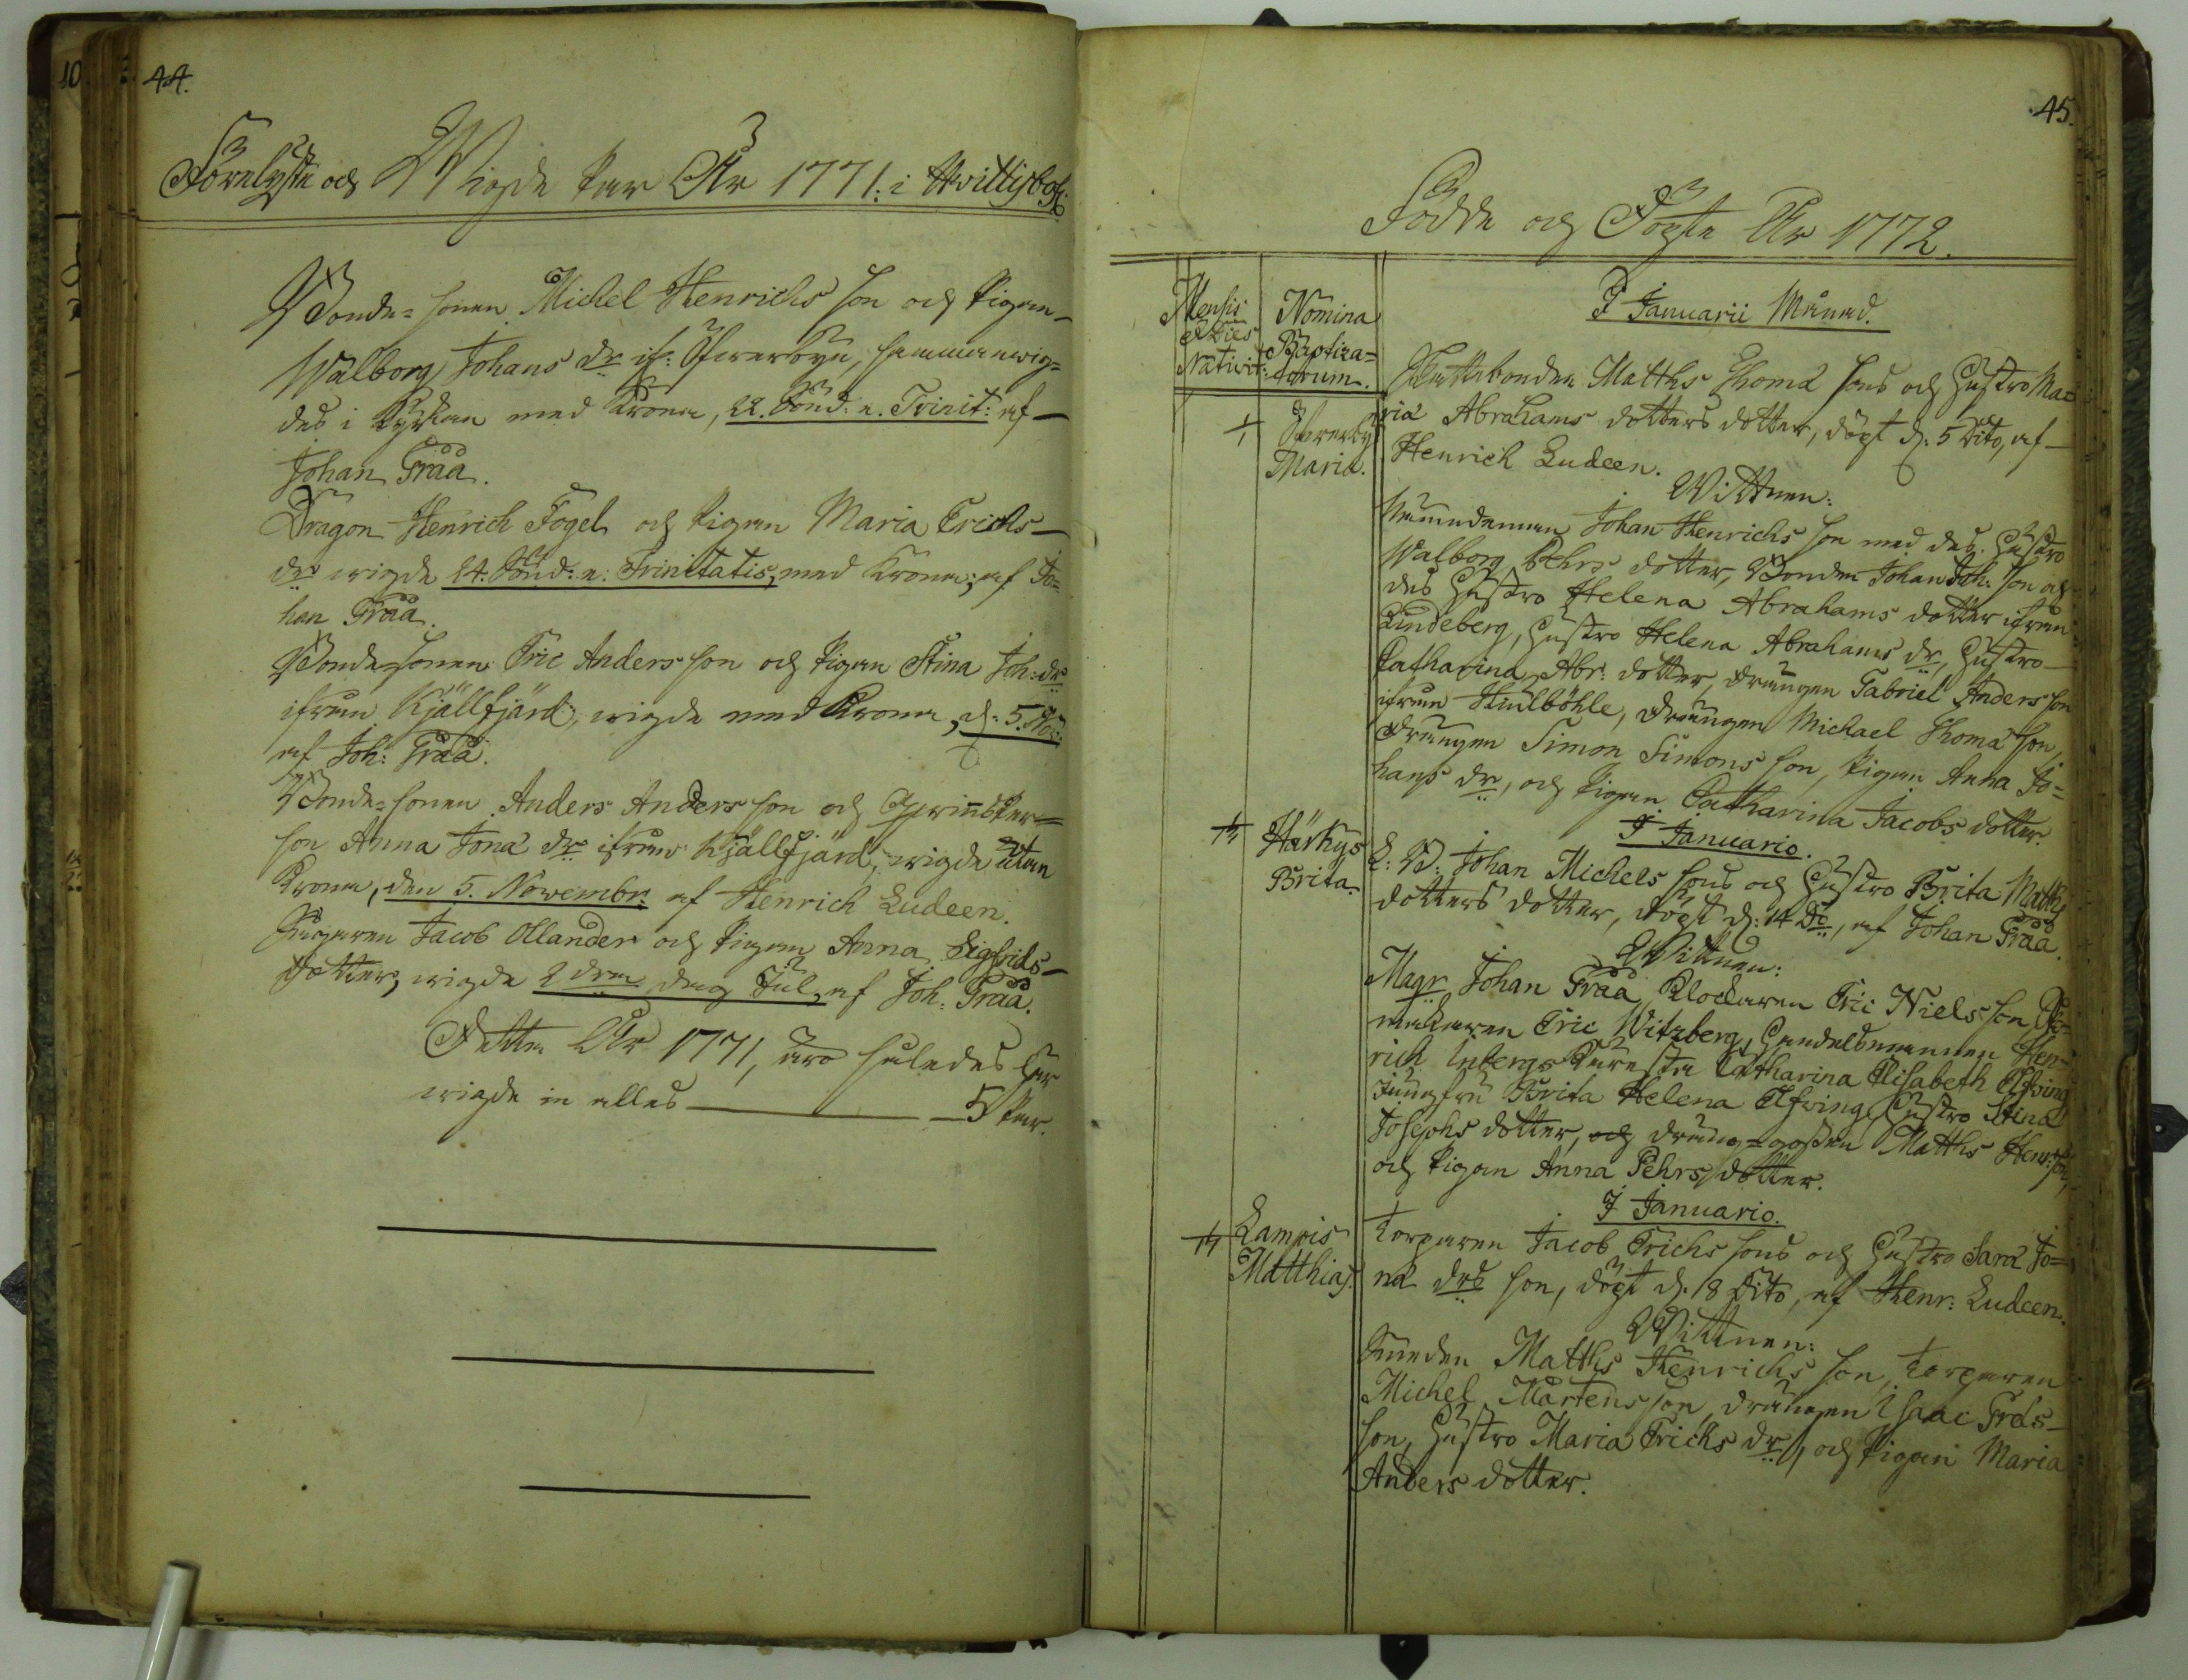 44.
Förelyste och Wigde Par År 1771. i Qwittisbof:
Bonde-sonen Michel Henrichs son och Pigan
Walborg Johans dr if: Öfwerbyn, sammanwig-
des i Kyrkan med Krona, 22. Sönd: a. Trinit: af
Johan Fraa.
Dragon Henrich Fogel och Pigan Maria Erichs
dr wigde 24. Sönd: a: Trinitatis, med Krona; af Jo-
han Fraa.
Bonde-sonen Eric Anders son och Pigan Stina Joh: dr
ifrån Kjällfjärd, wigde med Krona, d: 5. Nov:
af Joh: Fraa.
Bonde-sonen Anders Anders son och
son Anna Jona dr ifrån Kjällfjärd, wigde utan
Krona, den 5. Novembr: af Henrich Ludeen.
Jacob Ollander och Pigan Anna Sigfrids-
dotter, wigde 2 dra dag Jul, af Joh: Fraa.
Detta År 1771, äro således här
wigde in alles 5 Par.
45.
Födde och Döpte År 1772.
Mensis Dies Nativit:
Nomina Baptiza=torum.
I Januarii Månad.
1 Öfwerby Maria.
Skattebonden Matths Thomæ sons och Hustro Ma=
ria Abrahams dotters dotter, döpt d: 5 Dito, af
Henrich Ludeen.
Wittnen:
Nämndeman Johan Henrichs son med des Hustro
Walborg Pehrs dotter, Bonden Johan Joh: son och
des Hustro Helena Abrahams dotter ifrån
Lindeberg, Hustro Helena Abrahams dr, Hustro
Catharina Abr: dotter, drängen Gabriel Anders son
ifrån Hiulböhle, drängen Michael Thomæ son,
drängen Simon Simons son, Pigan Anna Jo=
hans dr, och Pigan Catharina Jacobs dotter.
I Januario.
Härkys Brita.
L: B: Johan Michels sons och Hustro Brita Matths
dotters dotter, döpt d: 14 Do, af Johan Fraa.
Wittnen:
Magr Johan Fraa, Klockaren Eric Niels son,
makaren Eric Witzberg, Handelsmannen Hen-
rich Catharina Elisabeth Elfving
Jungfru Brita Helena Elfving, Hustro Stina
Josephs dotter, och dräng-gossen Matths Henr: son,
och Pigan Anna Pehrs dotter.
I Januario.
Lampis Matthias.
Torparen Jacob Erichs sons och Hustro Sara Jo=
næ drs son, döpt d. 18 Dito, af Henr: Ludeen.
Wittnen:
Smeden Matths Henrichs son, Torparen
Michel Mårtens son, drängen Isaac Frds-
son, Hustro Maria Erichs dr, och Pigan Maria
Anders dotter.